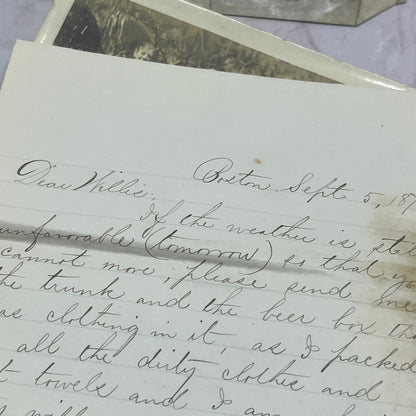 Boston. Sept. 5, 18
Dear Willie;
If the weather is
unfavorable (tomorrow) so that
cannot more; please send me
the trunk and the beer box
as clothing in it, as I packed
all the dirty clothes and
towels and I am